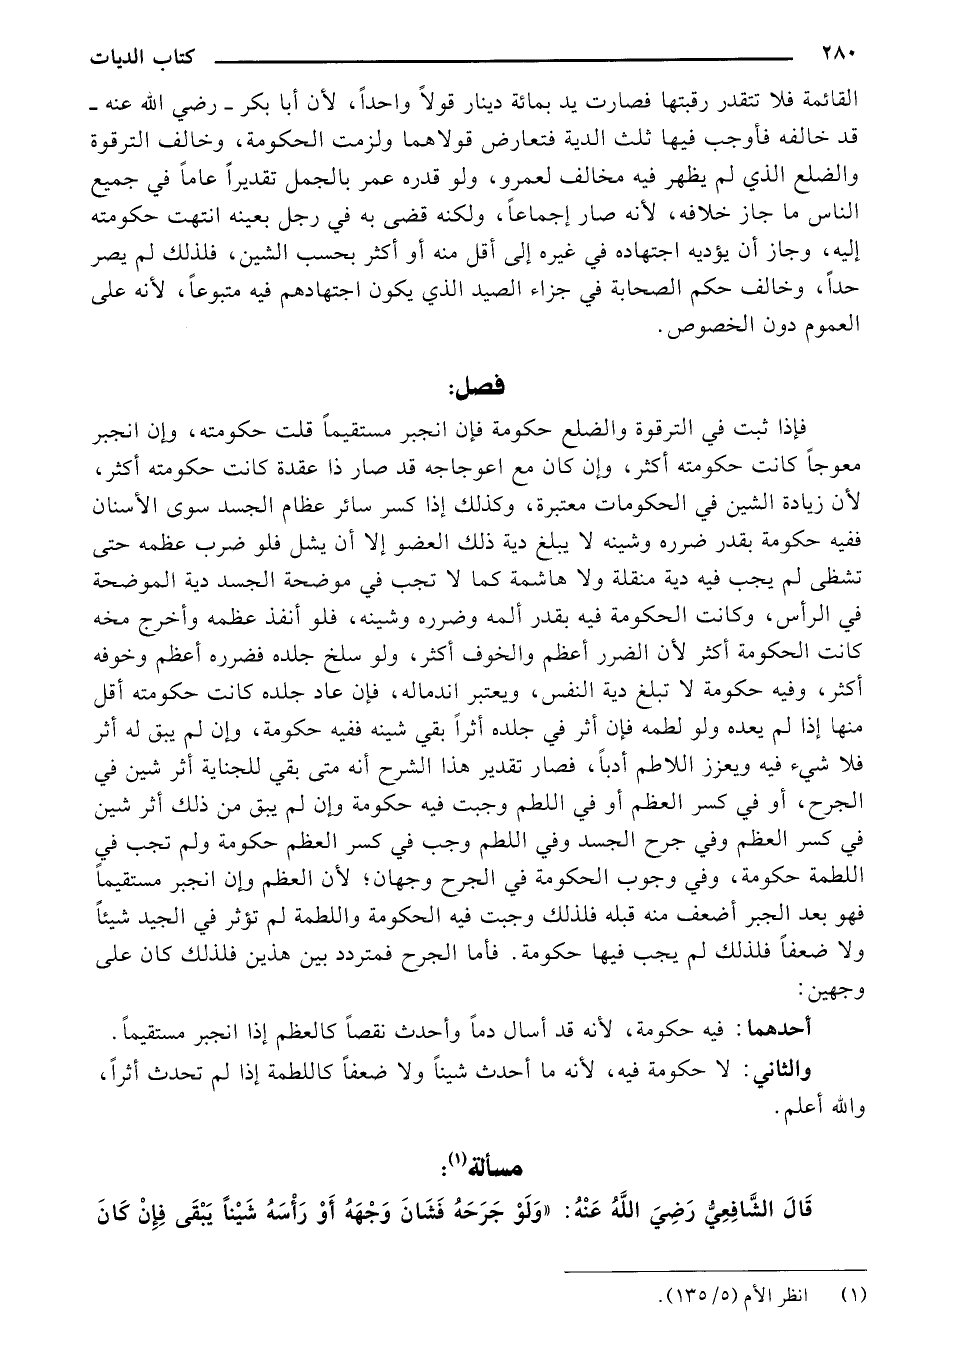 ٢٨٠ كتاب الديات
القائمة فلا تتقدر رقبتها فصارت يد بمائة دينار قولاً واحداً، لأن أبا بكر ـ رضي الله عنه ـ
قد خالفه فأوجب فيها ثلث الدية فتعارض قولاهما ولزمت الحكومة، وخالف الترقوة
والضلع الذي لم يظهر فيه مخالف لعمرو، ولو قدره عمر بالجمل تقديراً عاماً في جميع
الناس ما جاز خلافه، لأنه صار إجماعاً، ولكنه قضى به في رجل بعينه انتهت حكومته
إليه، وجاز أن يؤديه اجتهاده في غيره إلى أقل منه أو أكثر بحسب الشين، فلذلك لم يصر
حداً، وخالف حكم الصحابة في جزاء الصيد الذي يكون اجتهادهم فيه متبوعاً، لأنه على
العموم دون الخصوص.
فصل:
فإذا ثبت في الترقوة والضلع حكومة فإن انجبر مستقيماً قلت حكومته، وإن انجبر
معوجاً كانت حكومته أكثر، وإن كان مع اعوجاجه قد صار ذا عقدة كانت حكومته أكثر،
لأن زيادة الشين في الحكومات معتبرة، وكذلك إذا كسر سائر عظام الجسد سوى الأسنان
ففيه حكومة بقدر ضرره وشينه لا يبلغ دية ذلك العضو إلا أن يشل فلو ضرب عظمه حتى
تشظى لم يجب فيه دية منقلة ولا هاشمة كما لا تجب في موضحة الجسد دية الموضحة
في الرأس، وكانت الحكومة فيه بقدر ألمه وضرره وشينه، فلو أنفذ عظمه وأخرج مخه
كانت الحكومة أكثر لأن الضرر أعظم والخوف أكثر، ولو سلخ جلده فضرره أعظم وخوفه
أكثر، وفيه حكومة لا تبلغ دية النفس، ويعتبر اندماله، فإن عاد جلده كانت حكومته أقل
منها إذا لم يعده ولو لطمه فإن أثر في جلده أثراً بقي شينه ففيه حكومة، وإن لم يبق له أثر
فلا شيء فيه ويعزز اللاطم أدباً، فصار تقدير هذا الشرح أنه متى بقي للجناية أثر شين في
الجرح، أو في كسر العظم أو في اللطم وجبت فيه حكومة وإن لم يبق من ذلك أثر شين
في كسر العظم وفي جرح الجسد وفي اللطم وجب في كسر العظم حكومة ولم تجب في
اللطمة حكومة، وفي وجوب الحكومة في الجرح وجهان؛ لأن العظم وإن انجبر مستقيماً
فهو بعد الجبر أضعف منه قبله فلذلك وجبت فيه الحكومة واللطمة لم تؤثر في الجيد شيئاً
ولا ضعفاً فلذلك لم يجب فيها حكومة. فأما الجرح فمتردد بين هذين فلذلك كان على
وجهين:
أحدهما: فيه حكومة، لأنه قد أسال دماً وأحدث نقصاً كالعظم إذا انجبر مستقيماً.
والثاني: لا حكومة فيه، لأنه ما أحدث شيناً ولا ضعفاً كاللطمة إذا لم تحدث أثراً،
والله أعلم.
مسألة(١):
قَالَ الشَّافِعِيُّ رَضِيَ اللَّهُ عَنْهُ: «وَلَوْ جَرَحَهُ فَشَانَ وَجْهَهُ أَوْ رَأْسَهُ شَيْناً يَبْقَى فِإِنْ كَانَ
(١) انظر الأم (٥/ ١٣٥).